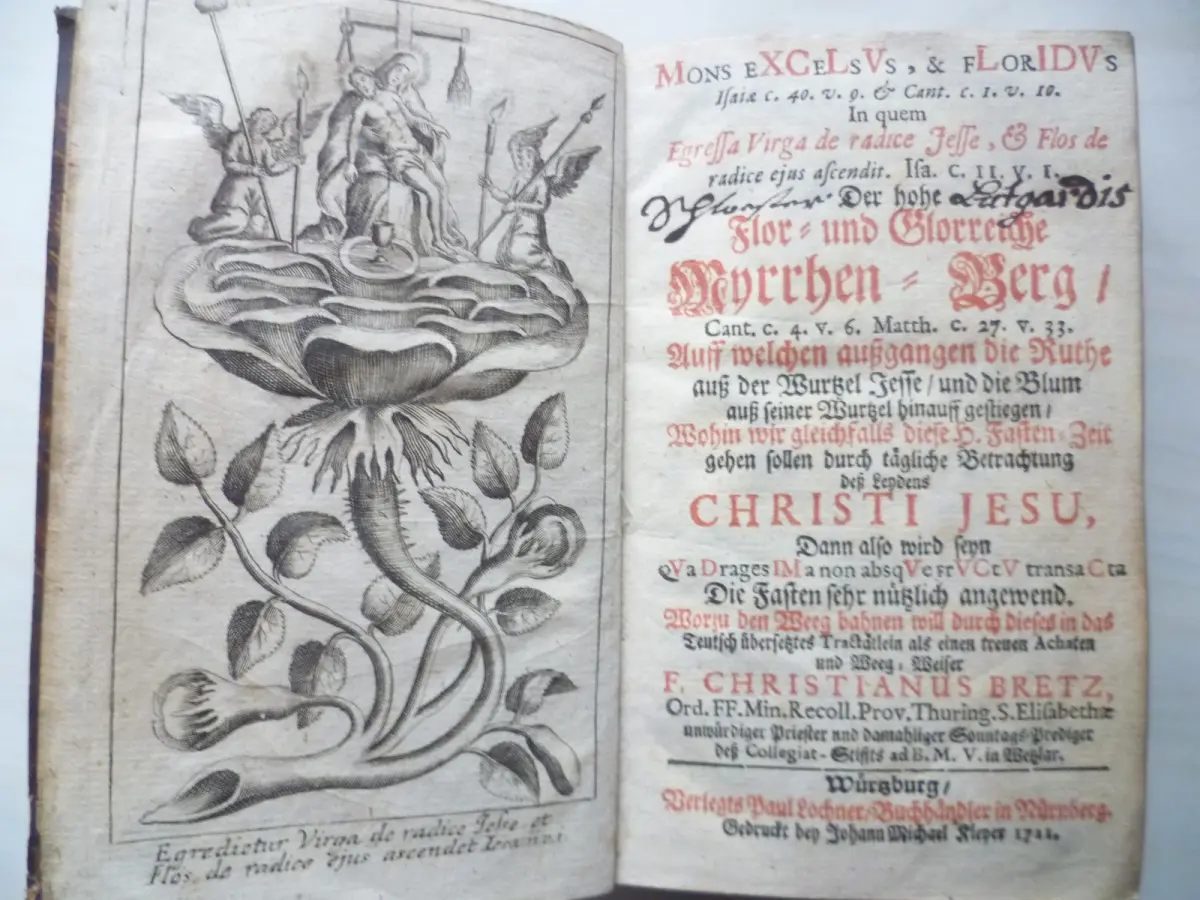 Egredietur Virga de radice Jesse et
Flos de radice ejus ascendet Isa. 11 v. 1.
MONS EXCELSVS, & FLORIDVS
Isaiæ c. 40. v. 9. & Cant. c. 1. v. 10.
In quem
Egressa Virga de radice Jesse, & Flos de
radice ejus ascendit. Isa. c. 11. v. 1.
Schwester Der hohe Lutgardis
Flor- und Glorreiche
Myrrhen-Berg /
Cant. c. 4. v. 6. Matth. c. 27. v. 33.
Auff welchen außgangen die Ruthe
auß der Wurtzel Jesse / und die Blum
auß seiner Wurtzel hinauff gestiegen /
Wohin wir gleichfalls diese H. Fasten-Zeit
gehen sollen durch tägliche Betrachtung
deß Leydens
CHRISTI JESU,
Dann also wird seyn
QVaDragesIMa non absqVe frVCtV transaCta
Die Fasten sehr nützlich angewend.
Worzu den Weeg bahnen will durch dieses in das
Teutsch übersetztes Tractätlein als einen treuen Achaten
und Weeg-Weiser
F. CHRISTIANUS BRETZ,
Ord. FF. Min. Recoll. Prov. Thuring. S. Elisabethæ
unwürdiger Priester und damahliger Sonntags-Prediger
deß Collegiat-Stiffts ad B. M. V. in Wetzlar.
Würtzburg /
Verlegts Paul Lochner / Buchhändler in Nürnberg.
Gedruckt bey Johann Michael Kleyer